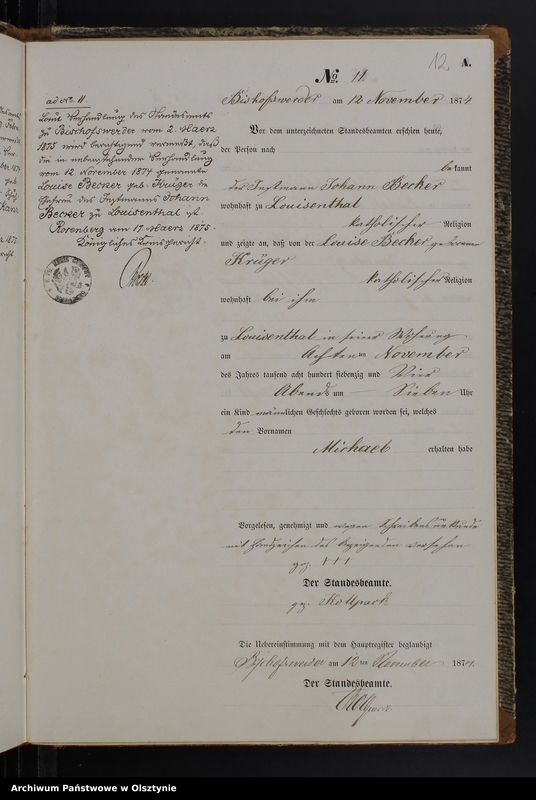 12
A.
No. 11.
ad No 11
Laut Verhandlung des Standesamts
zu Bischofswerder vom 2. Maerz
1875 wird beigefügt vermerkt, daß
die in nebenstehender Verhandlung
vom 12. November 1874 genannte
Louise Becker geb. Krüger die
Ehefrau des Instmanns Johann
Becker zu Louisenthal ist.
Rosenberg den 17. Maerz 1875.
Königliches Kreisgericht.
Bischofswerder am 12 November 1874
Vor dem unterzeichneten Standesbeamten erschien heute,
der Person nach
bekannt
der Instmann Johann Becker
wohnhaft zu Louisenthal
katholischer Religion
und zeigte an, daß von der Louise Becker geborenen
Krüger
katholischer Religion
wohnhaft bei ihm
zu Louisenthal in seiner Wohnung
am Achten ten November
des Jahres tausend acht hundert siebenzig und Vier
Abends um Sieben Uhr
ein Kind männlichen Geschlechts geboren worden sei, welches
den Vornamen
Michael erhalten habe
Vorgelesen, genehmigt und wegen Schreibensunkunde
mit Handzeichen des Anzeigenden versehen
gez. +++
Der Standesbeamte.
gez. Kollpack
Die Uebereinstimmung mit dem Hauptregister beglaubigt
Bischofswerder am 12 ten November 1874.
Der Standesbeamte.
Kollpack
Archiwum Państwowe w Olsztynie